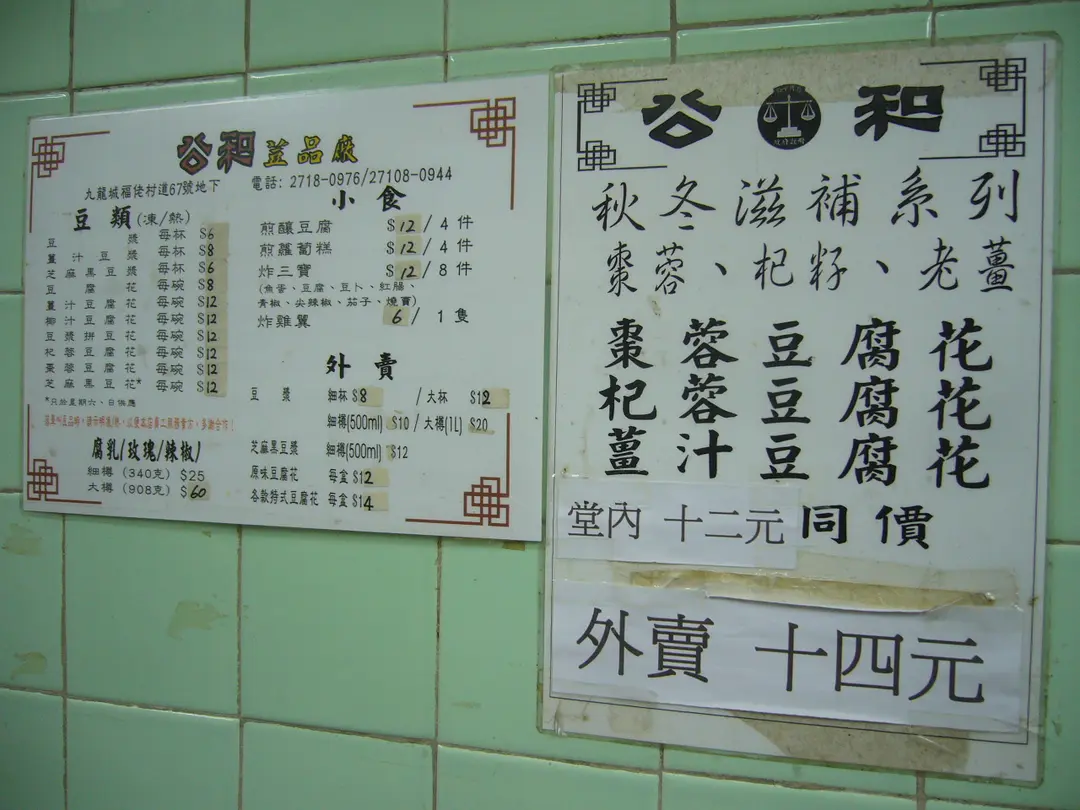 公和荳品廠
九龍城福佬村道67號地下
電話: 2718-0976/27108-0944
豆類(凍/熱)
豆漿 每杯 $6
薑汁豆漿 每杯 $8
芝麻黑豆漿 每杯 $6
豆腐花 每碗 $8
薑汁豆腐花 每碗 $12
椰汁豆腐花 每碗 $12
豆漿拼豆花 每碗 $12
杞蓉豆腐花 每碗 $12
棗蓉豆腐花 每碗 $12
芝麻黑豆花* 每碗 $12
*只於星期六、日供應
腐乳/玫瑰/辣椒)
細樽 (340克) $25
大樽 (908克) $60
小食
煎釀豆腐 $12 / 4 件
煎蘿蔔糕 $12 / 4 件
炸三寶 $12 / 8 件
(魚香、豆腐、豆卜、紅腸、
青椒、尖辣椒、茄子、燒賣)
炸雞翼 6 / 1 隻
外賣
豆漿 細杯 $8 / 大杯 $12
細樽(500ml) $10 / 大樽(1L) $20
芝麻黑豆漿 細樽(500ml) $12
原味豆腐花 每盒 $12
各款特式豆腐花 每盒 $14
公和
秋冬滋補系列
棗蓉、杞籽、老薑
棗蓉豆腐花
杞蓉豆腐花
薑汁豆腐花
堂內 十二元同價
外賣 十四元